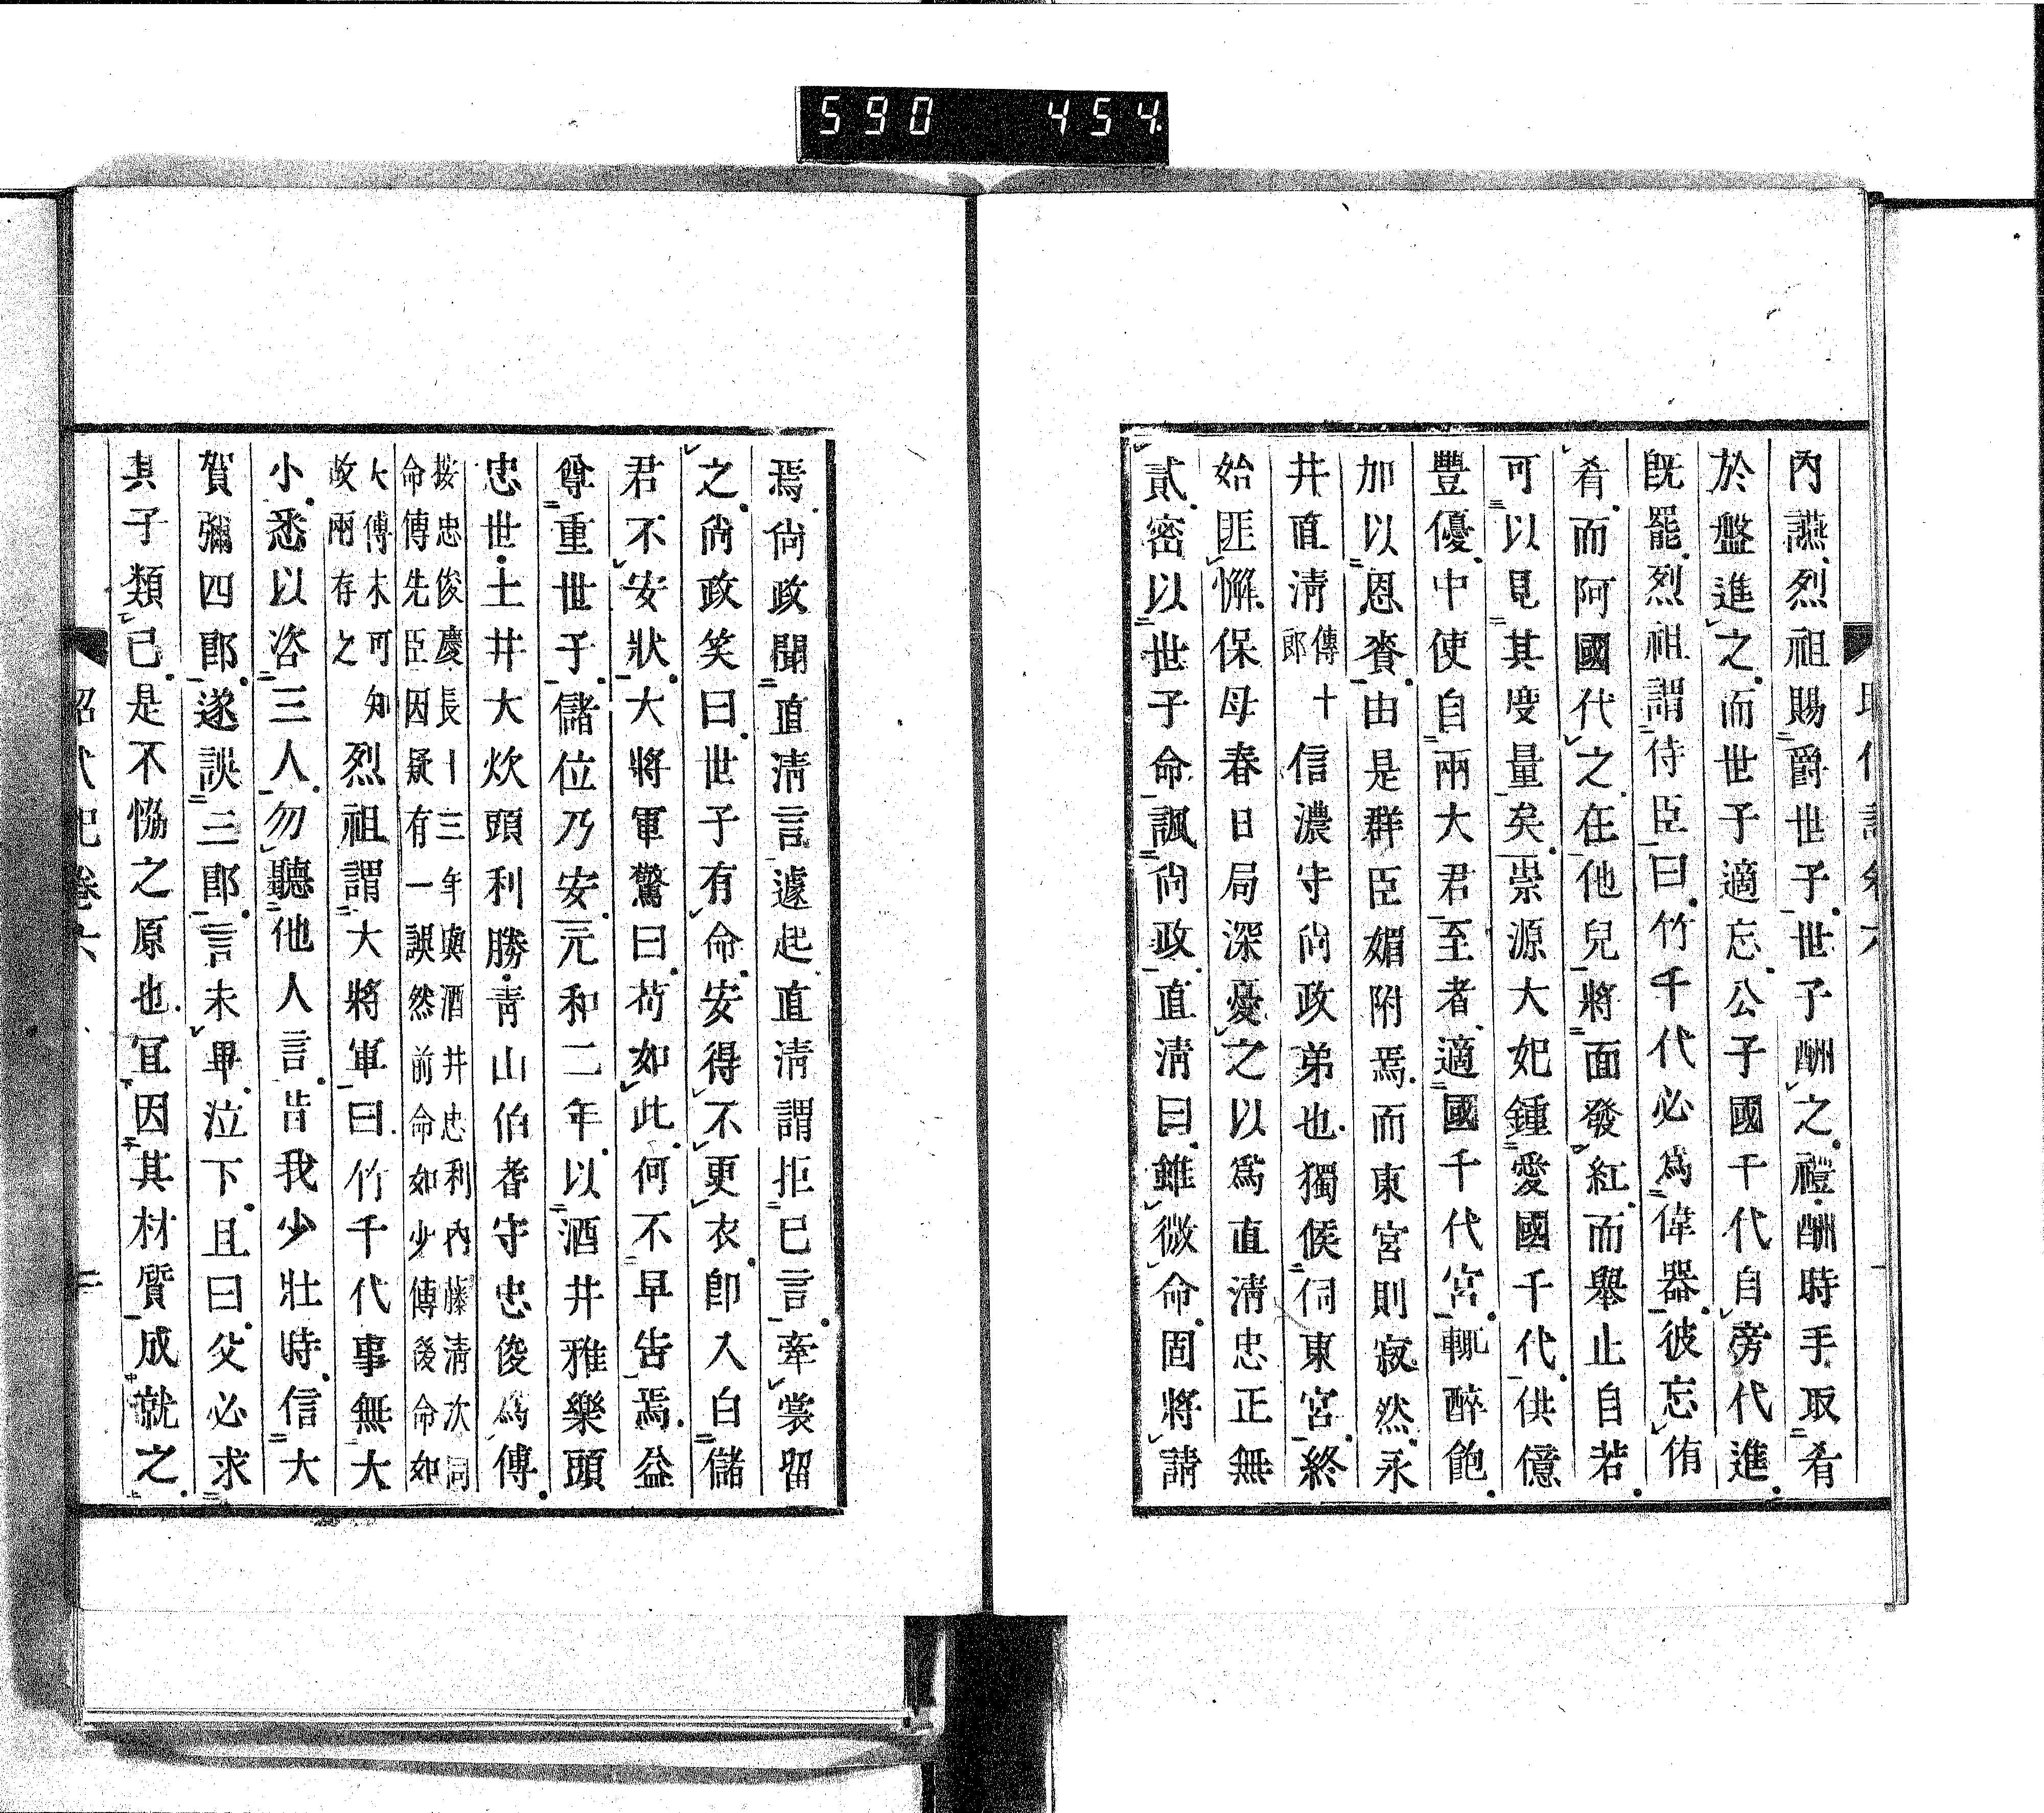 590 454
內讌烈祖賜爵世子世子酬之禮酬時手取肴
於盤進之而世子適忘公子國千代自旁代進
既罷烈祖謂侍臣曰竹千代必為偉器彼忘侑
肴而阿國代之在他兒將面發紅而舉止自若
可以見其度量矣崇源大妃鍾愛國千代供億
豐優中使自兩大君至者適國千代宮輒醉飽
加以恩賚由是群臣媚附焉而東宮則寂然永
井直淸傳十郎信濃守尙政弟也獨候伺東宮終
始匪懈保母春日局深憂之以為直淸忠正無
貳密以世子命諷尙政直淸曰雖微命固將請
焉尙政聞直淸言遽起直淸謂拒已言牽裳留
之尙政笑曰世子有命安得不更衣卽入白儲
君不安狀大將軍驚曰苟如此何不早告焉益
尊重世子儲位乃安元和二年以酒井雅樂頭
忠世土井大炊頭利勝靑山伯耆守忠俊為傅
按忠俊慶長十三年與酒井忠利內藤淸次同
命傳先臣因疑有一誤然前命如少傅後命如
大傅未可知
故兩存之
烈祖謂大將軍曰竹千代事無大
小悉以咨三人勿聽他人言昔我少壯時信大
賀彌四郎遂誤三郎言未畢泣下且曰父必求
其子類己是不恊之原也宜因其材質成就之
昭代記卷六 二